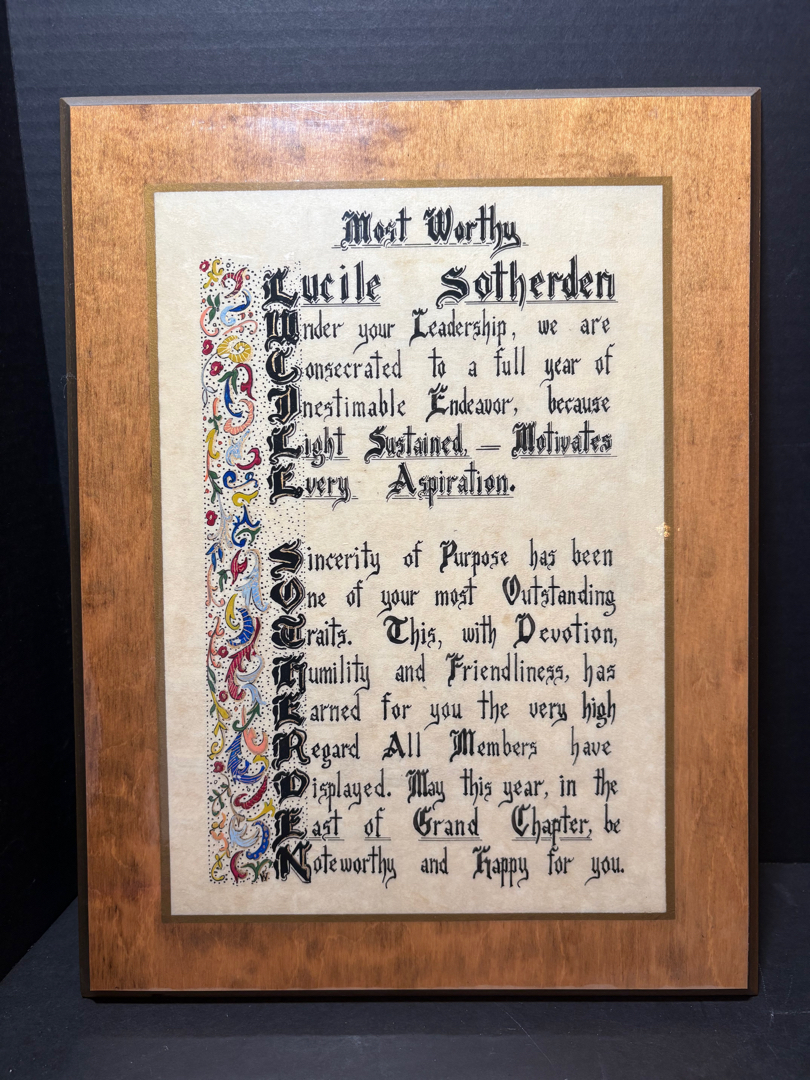 Most Worthy
Lucile Sotherden
Under your Leadership, we are
Consecrated to a full year of
Inestimable Endeavor, because
Light Sustained, — Motivates
Every Aspiration.
Sincerity of Purpose has been
One of your most Outstanding
Traits. This, with Devotion,
Humility and Friendliness, has
Earned for you the very high
Regard All Members have
Displayed. May this year, in the
East of Grand Chapter, be
Noteworthy and Happy for you.